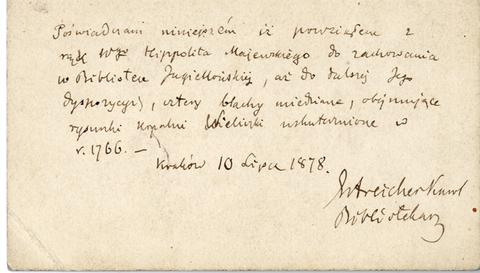 Poświadczam niniejszém iż powziąłem z
rąk WJe Hippolita Majewskiego do zachowania
w Bibliotece Jagiellońskiej, aż do dalszej Jego
dyspozycyi, cztery blachy miedziane, obejmujące
rysunki kopalni Wieliczki uskutecznione w
r. 1766. —
Kraków 10 Lipca 1878.
Estreicher Karol
Bibliotekarz